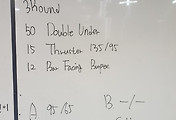 3Round
50 Double Under
15 Thruster 135/95
12 Bar Facing Burpee
A 95/65
B. -/-